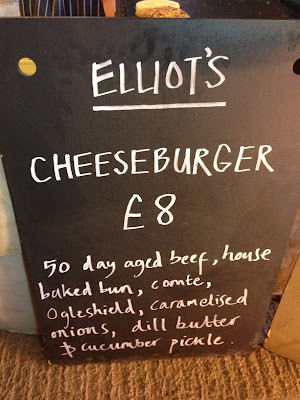 ELLIOT'S
CHEESEBURGER
£8
50 day aged beef, house
baked bun, comte,
Ogleshield, caramelised
onions, dill butter
& cucumber pickle.